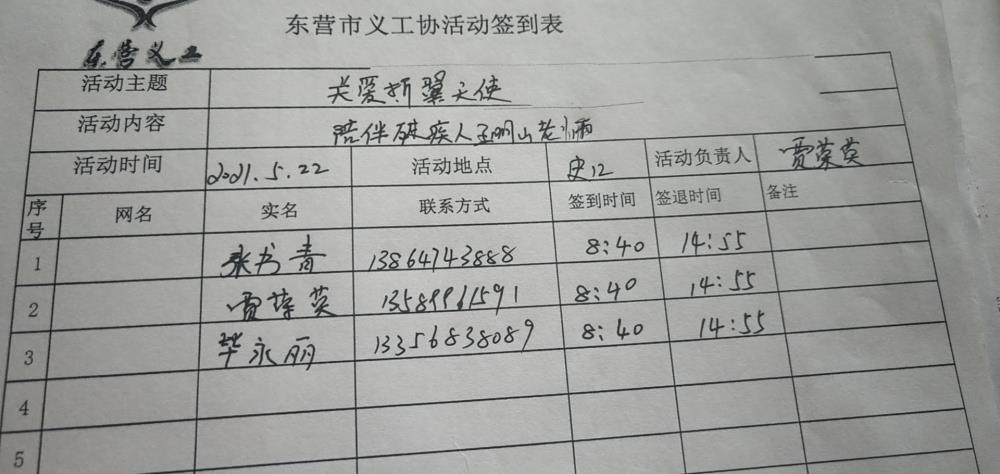 东营市义工协活动签到表
东营义工
活动主题 关爱折翼天使
活动内容 陪伴残疾人孟明山老师
活动时间 2021.5.22 活动地点 史口 活动负责人 贾荣英
序号 网名 实名 联系方式 签到时间 签退时间 备注
1 张书青 13864743888 8:40 14:55
2 贾荣英 13589961591 8:40 14:55
3 毕永丽 13356838089 8:40 14:55
4
5